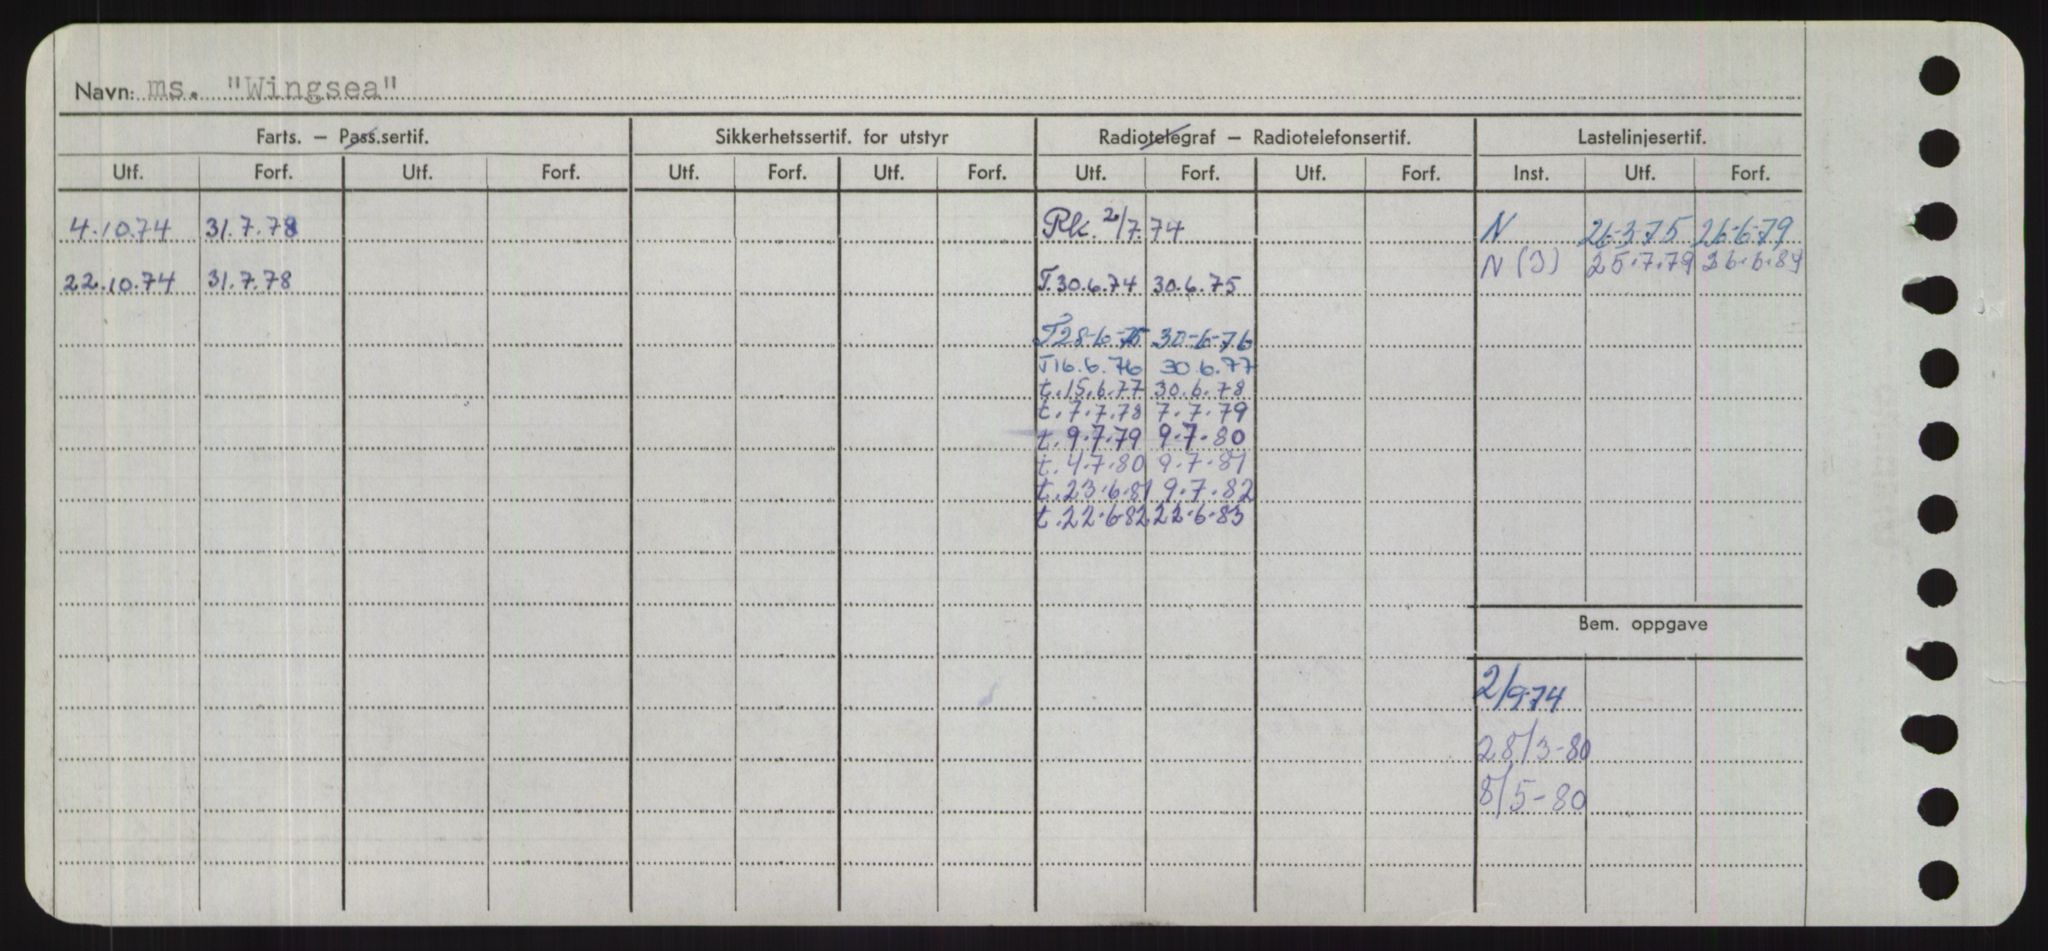 Navn: ms. "Wingsea"
Farts. – Pass.sertif. Sikkerhetssertif. for utstyr Radiotelegraf – Radiotelefonsertif. Lastelinjesertif.
Utf. Forf. Utf. Forf. Utf. Forf. Utf. Forf. Utf. Forf. Utf. Forf. Inst. Utf. Forf.
4.10.74 31.7.78 Rk. 2/7.74 N 26-3-75 26-6-79
N (J) 25.7.79 26.6.84
22.10.74 31.7.78 T.30.6.74 30.6.75
T28-6-75 30-6-76
T16.6.76 30.6.77
t.15.6.77 30.6.78
t.7.7.78 7.7.79
t.9.7.79 9.7.80
t.4.7.80 9.7.81
t.23.6.81 9.7.82
t.22.6.82 22.6.83
Bem. oppgave
2/9-74
28/3-80
8/5-80